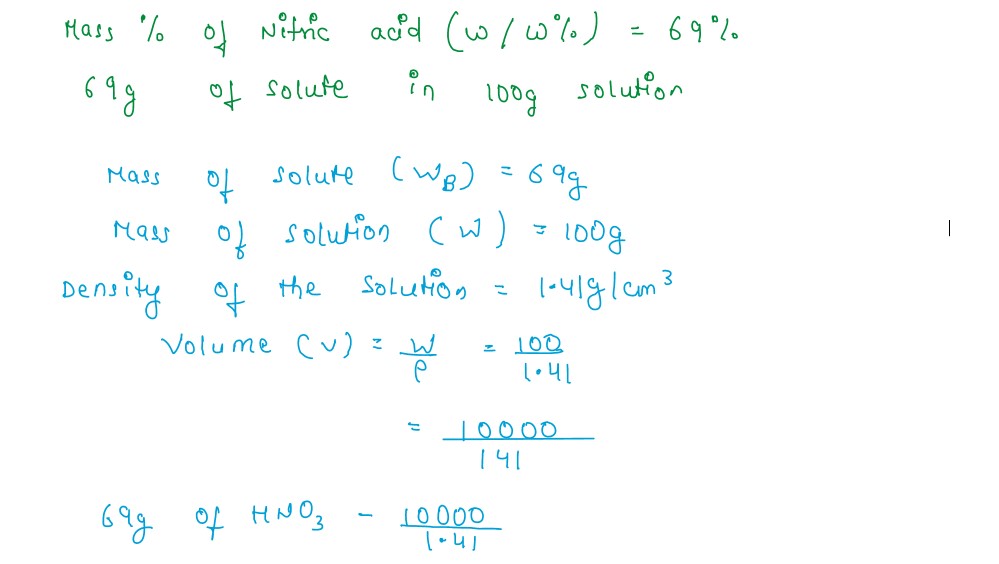 Mass % of Nitric acid (W/W%) = 69%
69g of solute in 100g solution
Mass of solute (W_B) = 69g
Mass of solution (W) = 100g
Density of the solution = 1.41g/cm³
Volume (V) = W/ρ = 100/1.41
= 10000/141
69g of HNO₃ - 10000/1.41